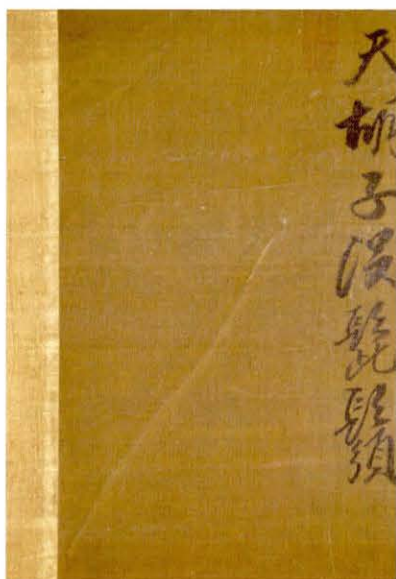 天胡子沒髭鬚